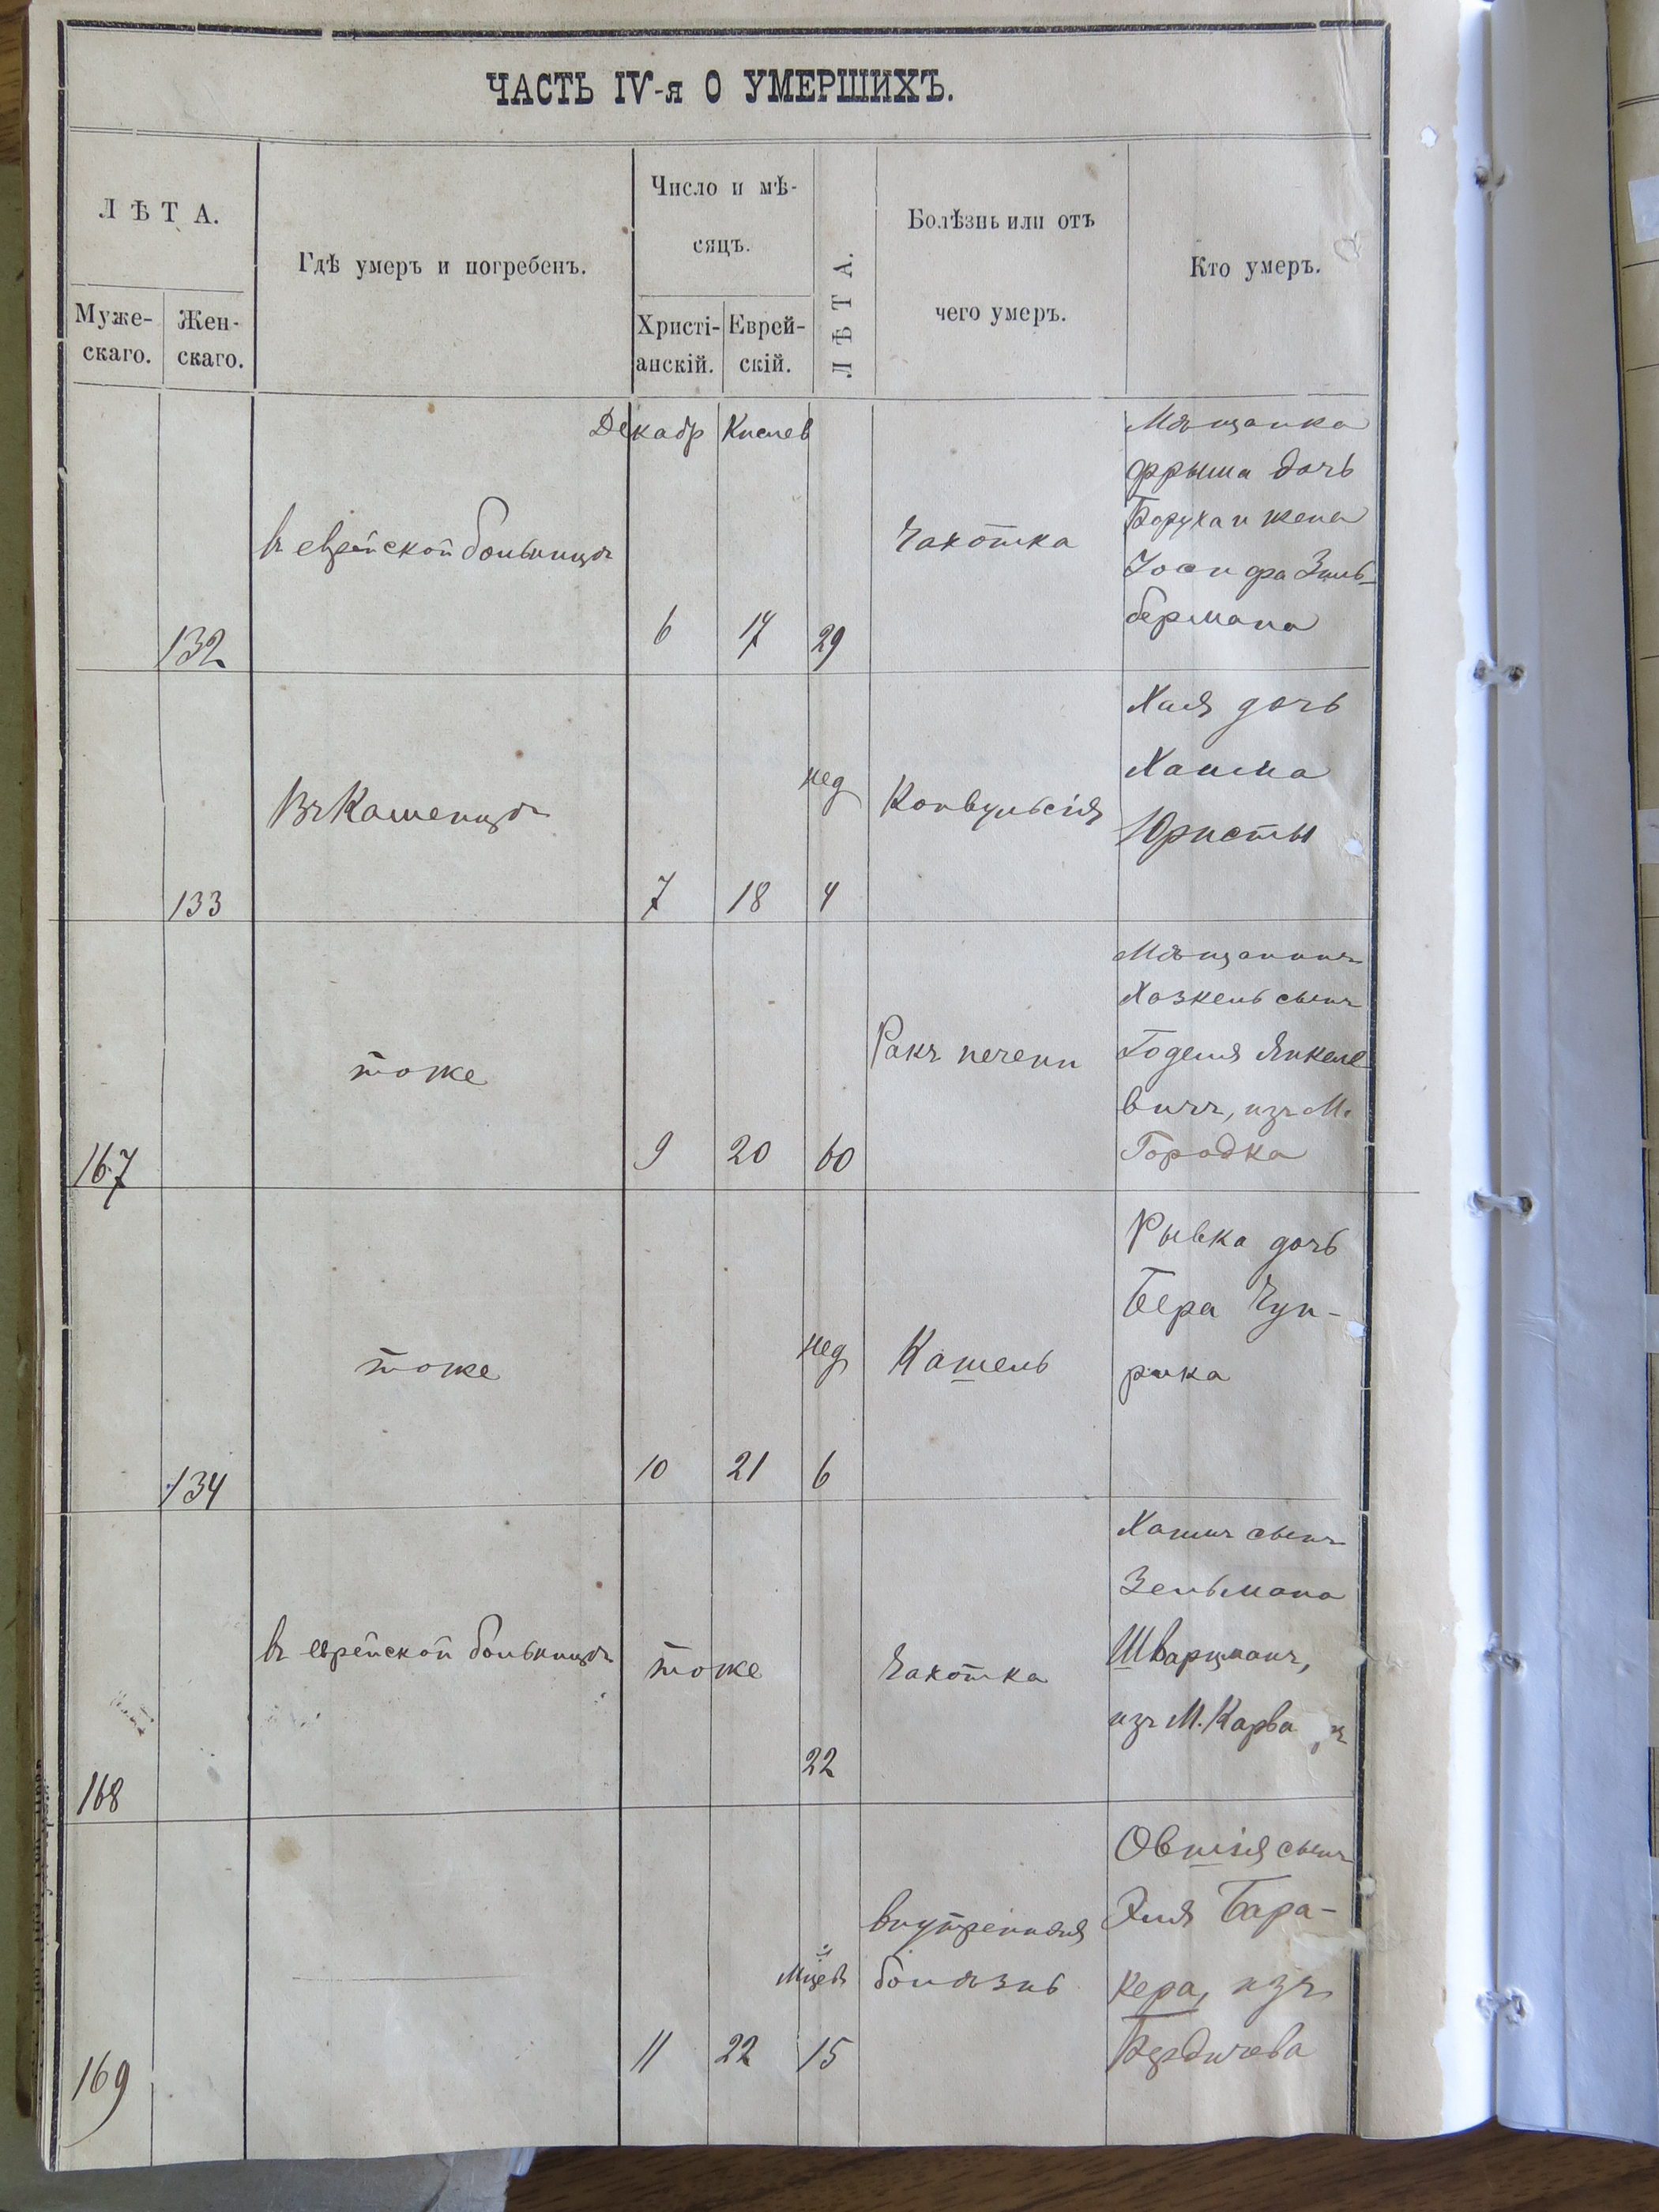 ЧАСТЬ IV-я О УМЕРШИХЪ.
ЛѢТА.
Муже-
скаго.
Жен-
скаго.
Гдѣ умеръ и погребенъ.
Число и мѣ-
сяцъ.
Христі-
анскій.
Еврей-
скій.
ЛѢТА.
Болѣзнь или отъ
чего умеръ.
Кто умеръ.
Декабр Кислев
132
въ еврейской больницѣ
6 17 29
Чахотка
Мѣщанка
Фрыма дочь
Боруха и жена
Иосифа Зиль-
бермана
133
Въ Кашеницѣ
7 18
нед
4
Конвульсія
Хая дочь
Хаима
Юристы
167
тоже
9 20 60
Ракъ печени
Мѣщанинъ
Хазкель сынъ
Годеля Янкеле
вичъ, изъ М.
Городка
134
тоже
10 21
нед
6
Кашель
Рывка дочь
Бера Чуп-
рика
168
въ еврейской больницѣ
тоже
22
Чахотка
Хаимъ сынъ
Зельмана
Шварцманъ,
изъ М.
169
11 22
15
внутренняя
болѣзнь
сынъ
Эля Бара-
кера, изъ
Бердичева